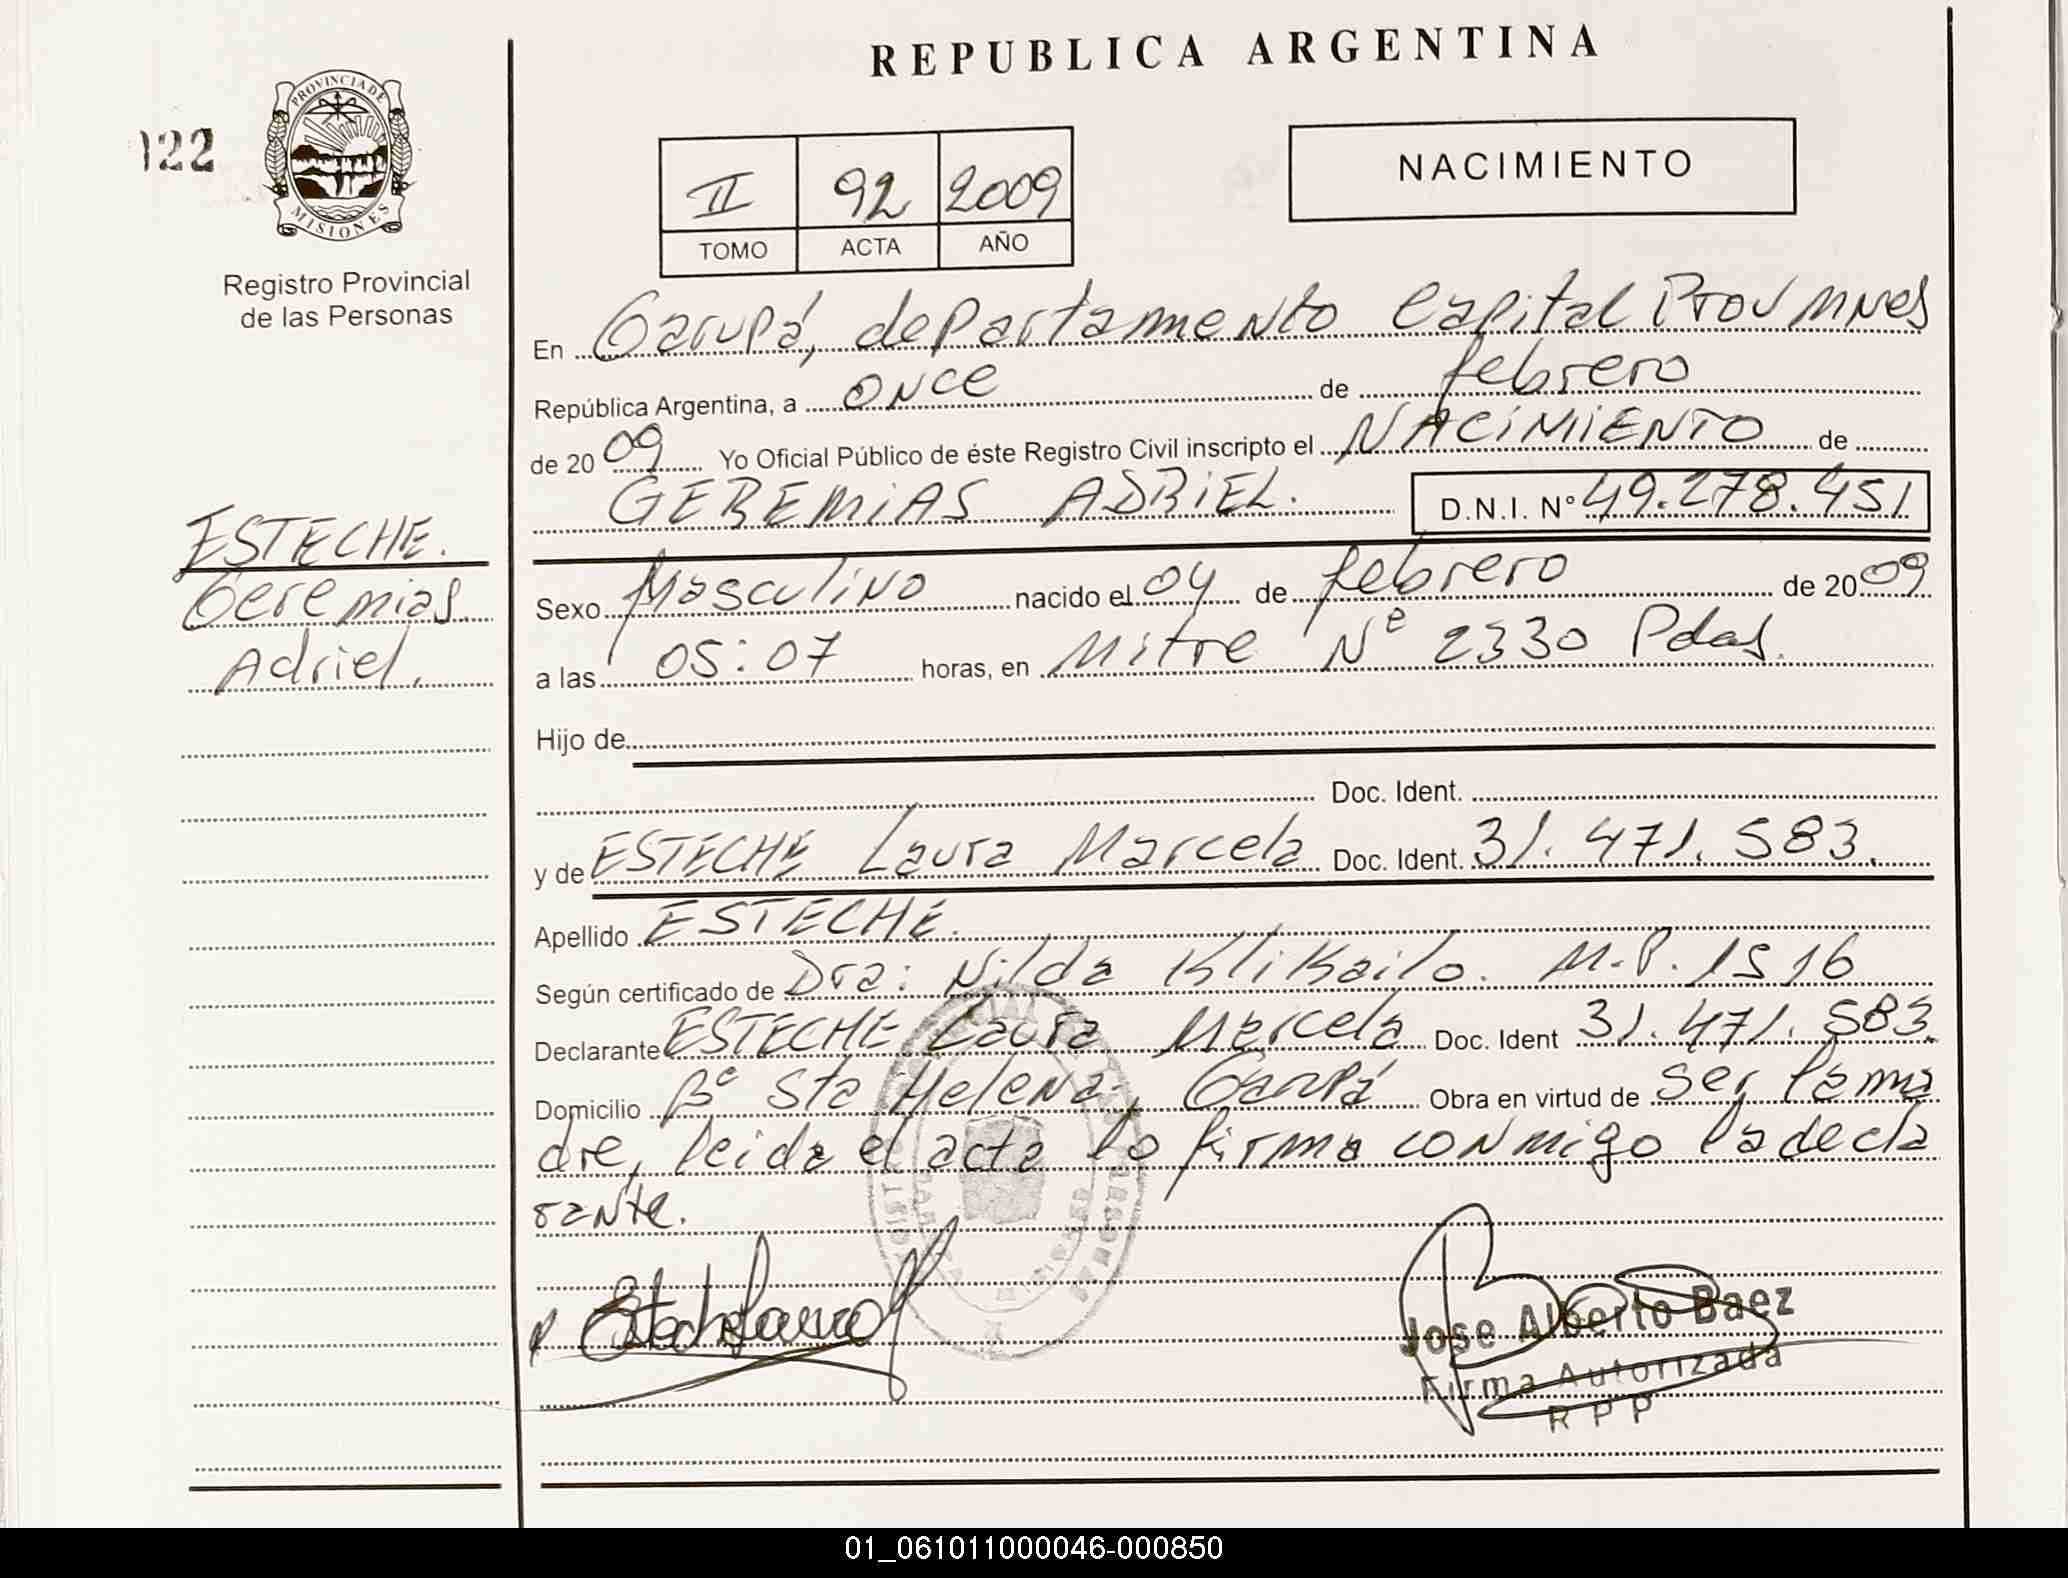 REPUBLICA ARGENTINA
122
PROVINCIA DE
MISIONES
Registro Provincial
de las Personas
NACIMIENTO
II 92 2009
TOMO ACTA AÑO
En Garupá, departamento Capital Prov Mnes
República Argentina, a once de febrero
de 2009 Yo Oficial Público de éste Registro Civil inscripto el NACIMIENTO de
GEREMIAS ADRIEL. D.N.I. Nº 49.278.451
ESTECHE.
Geremias
Adriel.
Sexo Masculino nacido el 04 de febrero de 2009
a las 05:07 horas, en Mitre Nº 2330 Pdas.
Hijo de
Doc. Ident.
y de ESTECHE Laura Marcela Doc. Ident. 31.471.583.
Apellido ESTECHE.
Según certificado de Dra: Nilda Klikailo. M.P. 1516
Declarante ESTECHE Laura Marcela Doc. Ident 31.471.583.
Domicilio Bº Sta Helena, Garupá Obra en virtud de ser la ma
dre, leida el acta lo firma conmigo la decla
rante.
Esteche Laura
Jose Alberto Baez
Firma Autorizada
RPP
01_061011000046-000850